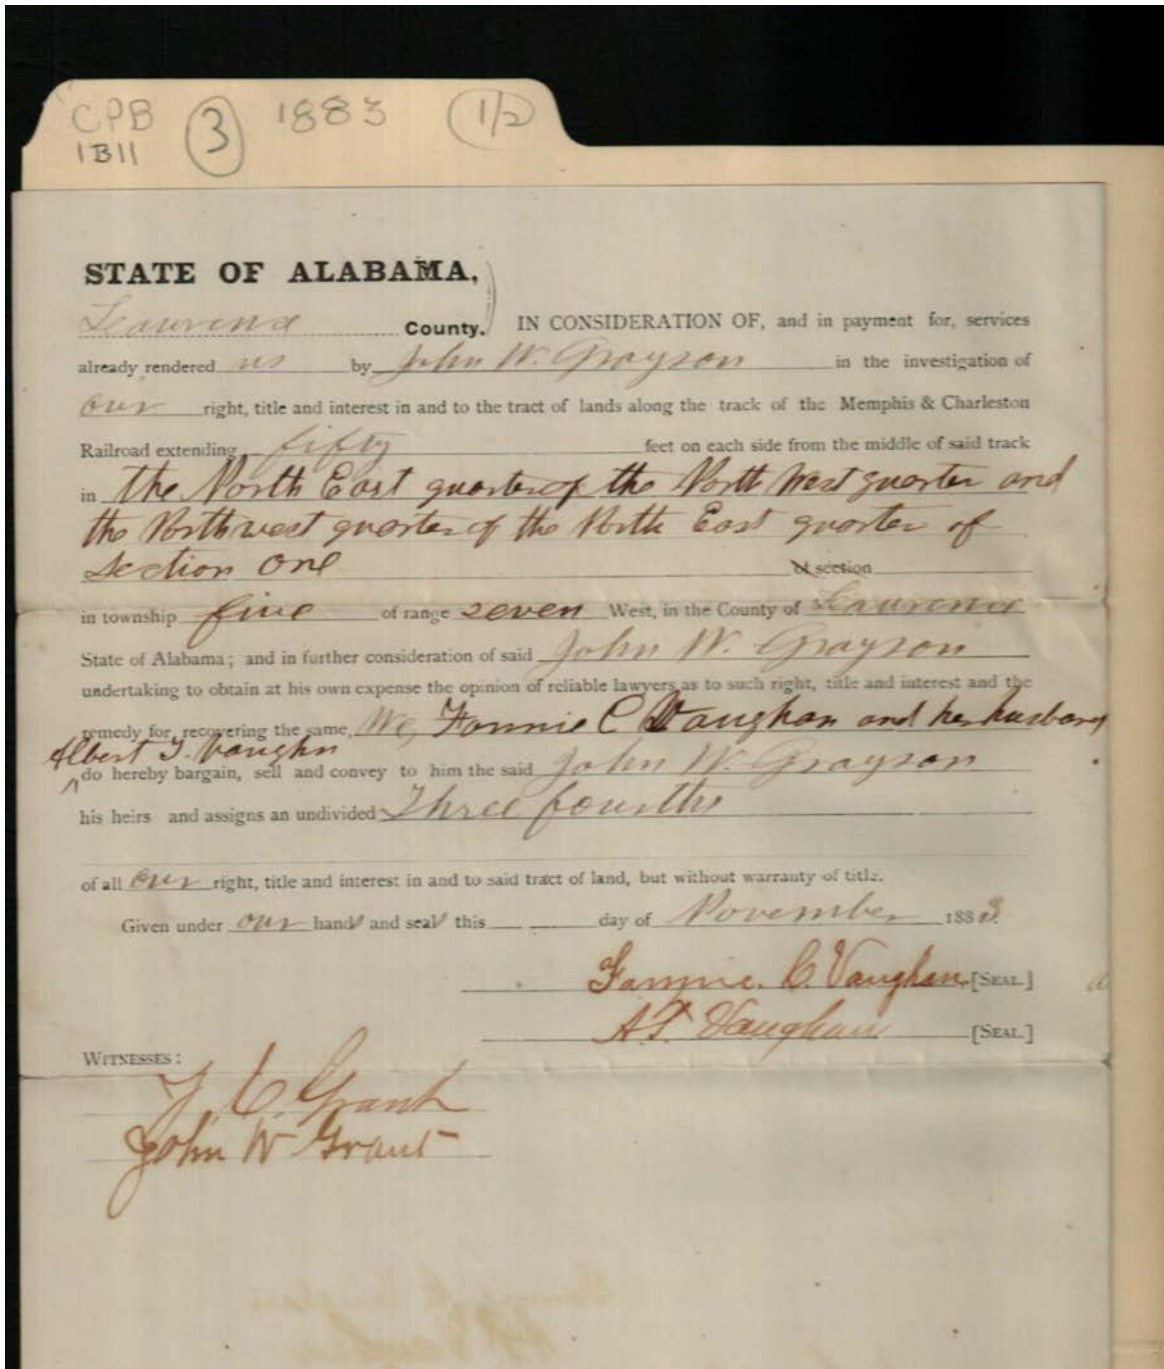 CPB ③ 1883 (1/2)
1B11
STATE OF ALABAMA,
Lawrence County. IN CONSIDERATION OF, and in payment for, services
already rendered us by John W. Grayson in the investigation of
our right, title and interest in and to the tract of lands along the track of the Memphis & Charleston
Railroad extending fifty feet on each side from the middle of said track
in the North East quarter of the North West quarter and
the Northwest quarter of the North East quarter of
Section One of section
in township five of range seven West, in the County of Lawrence
State of Alabama; and in further consideration of said John W. Grayson
undertaking to obtain at his own expense the opinion of reliable lawyers as to such right, title and interest and the
remedy for recovering the same, We, Fannie C Vaughan and her husband
Albert T. Vaughn
do hereby bargain, sell and convey to him the said John W. Grayson
his heirs and assigns an undivided Three fourths
of all our right, title and interest in and to said tract of land, but without warranty of title.
Given under our hand and seal this day of November 1883.
Fannie. C. Vaughan [SEAL]
A.T. Vaughan [SEAL]
WITNESSES:
C. Grant
John W Grant